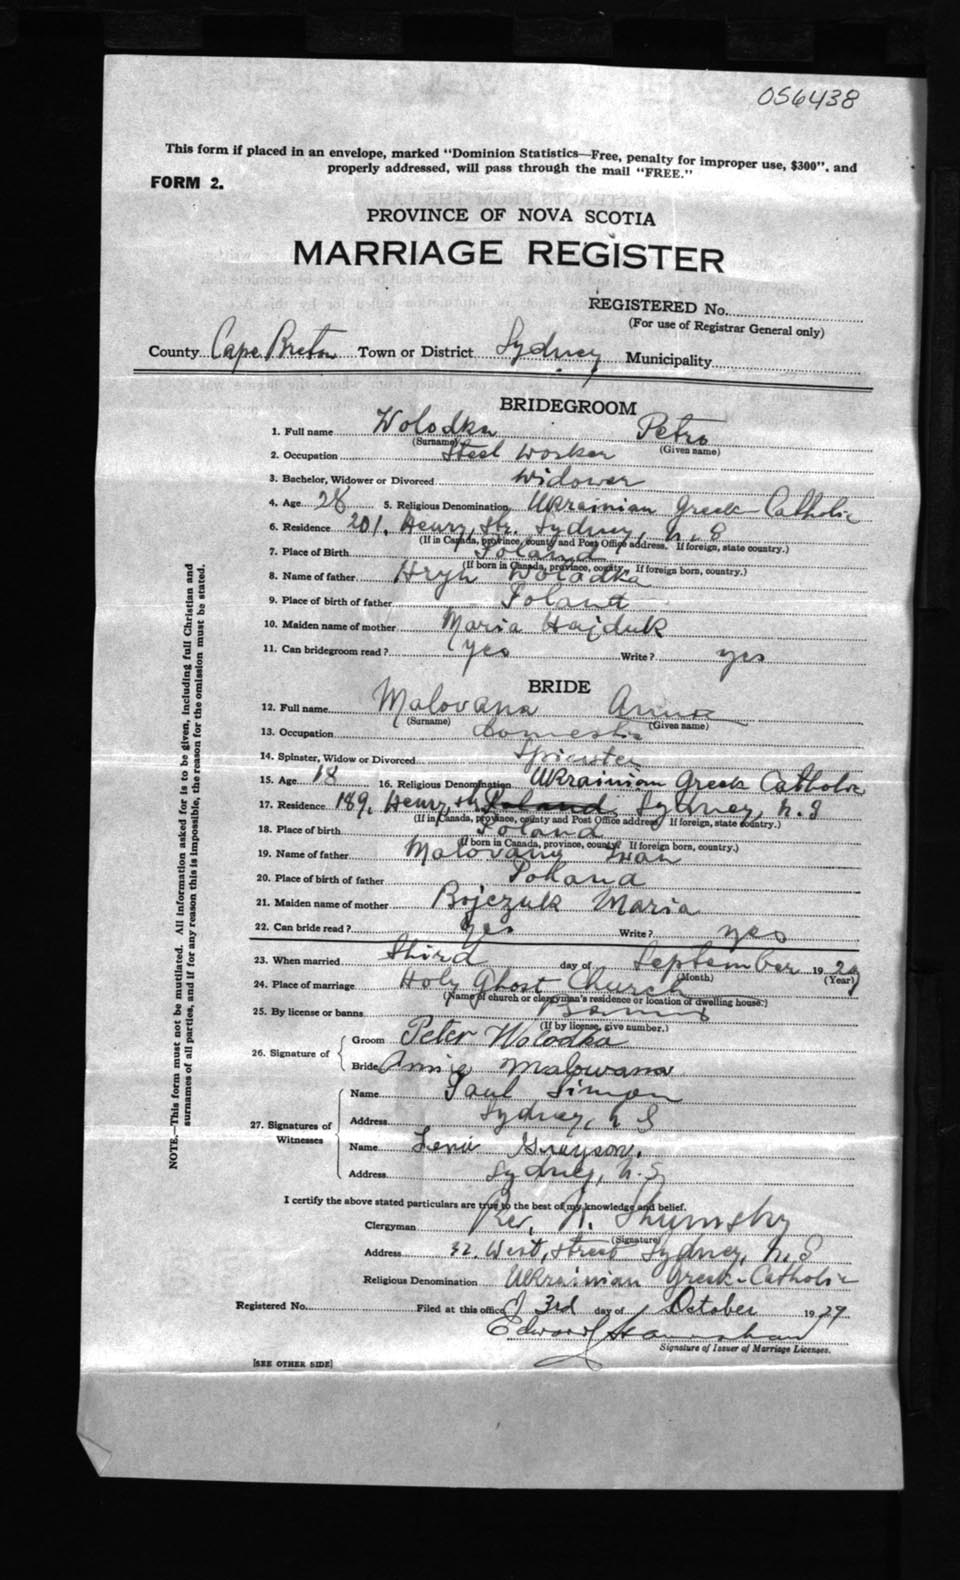 056438
This form if placed in an envelope, marked "Dominion Statistics—Free, penalty for improper use, $300", and
properly addressed, will pass through the mail "FREE."
FORM 2.
PROVINCE OF NOVA SCOTIA
MARRIAGE REGISTER
REGISTERED No.
(For use of Registrar General only)
County Cape Breton Town or District Sydney Municipality
BRIDEGROOM
1. Full name Wolodka Petro
(Surname) (Given name)
2. Occupation Steel worker
3. Bachelor, Widower or Divorced widower
4. Age 28 5. Religious Denomination Ukrainian Greek-Catholic
6. Residence 201, Henry, Str. Sydney, N.S
(If in Canada, province, county and Post Office address. If foreign, state country.)
7. Place of Birth Poland
(If born in Canada, province, county. If foreign born, country.)
8. Name of father Hryn Wolodka
9. Place of birth of father Poland
10. Maiden name of mother Maria Hajduk
11. Can bridegroom read? yes Write? yes
BRIDE
12. Full name Malovana Anna
(Surname) (Given name)
13. Occupation Domestic
14. Spinster, Widow or Divorced Spinster
15. Age 18 16. Religious Denomination Ukrainian Greek Catholic
17. Residence 189, Henry, str Poland Sydney, N.S
(If in Canada, province, county and Post Office address. If foreign, state country.)
18. Place of birth Poland
(If born in Canada, province, county. If foreign born, country.)
19. Name of father Malovany Iwan
20. Place of birth of father Poland
21. Maiden name of mother Bojczuk Maria
22. Can bride read? yes Write? yes
23. When married third day of September 1929
(Month) (Year)
24. Place of marriage Holy Ghost Church
(Name of church or clergyman's residence or location of dwelling house.)
25. By license or banns Banns
(If by license, give number.)
26. Signature of
Groom Peter Wolodka
Bride Annie Malowana
27. Signatures of Witnesses
Name Paul Simon
Address Sydney, N S
Name Lena Grayson.
Address Sydney, N.S
I certify the above stated particulars are true to the best of my knowledge and belief.
Clergyman Rev. N. Shumsky
(Signature)
Address 32, West, Street Sydney, N.S
Religious Denomination Ukrainian Greek-Catholic
Registered No. Filed at this office 3rd day of October 1929
Edward
Signature of Issuer of Marriage Licenses.
[SEE OTHER SIDE]
NOTE.—This form must not be mutilated. All information asked for is to be given, including full Christian and
surnames of all parties, and if for any reason this is impossible, the reason for the omission must be stated.